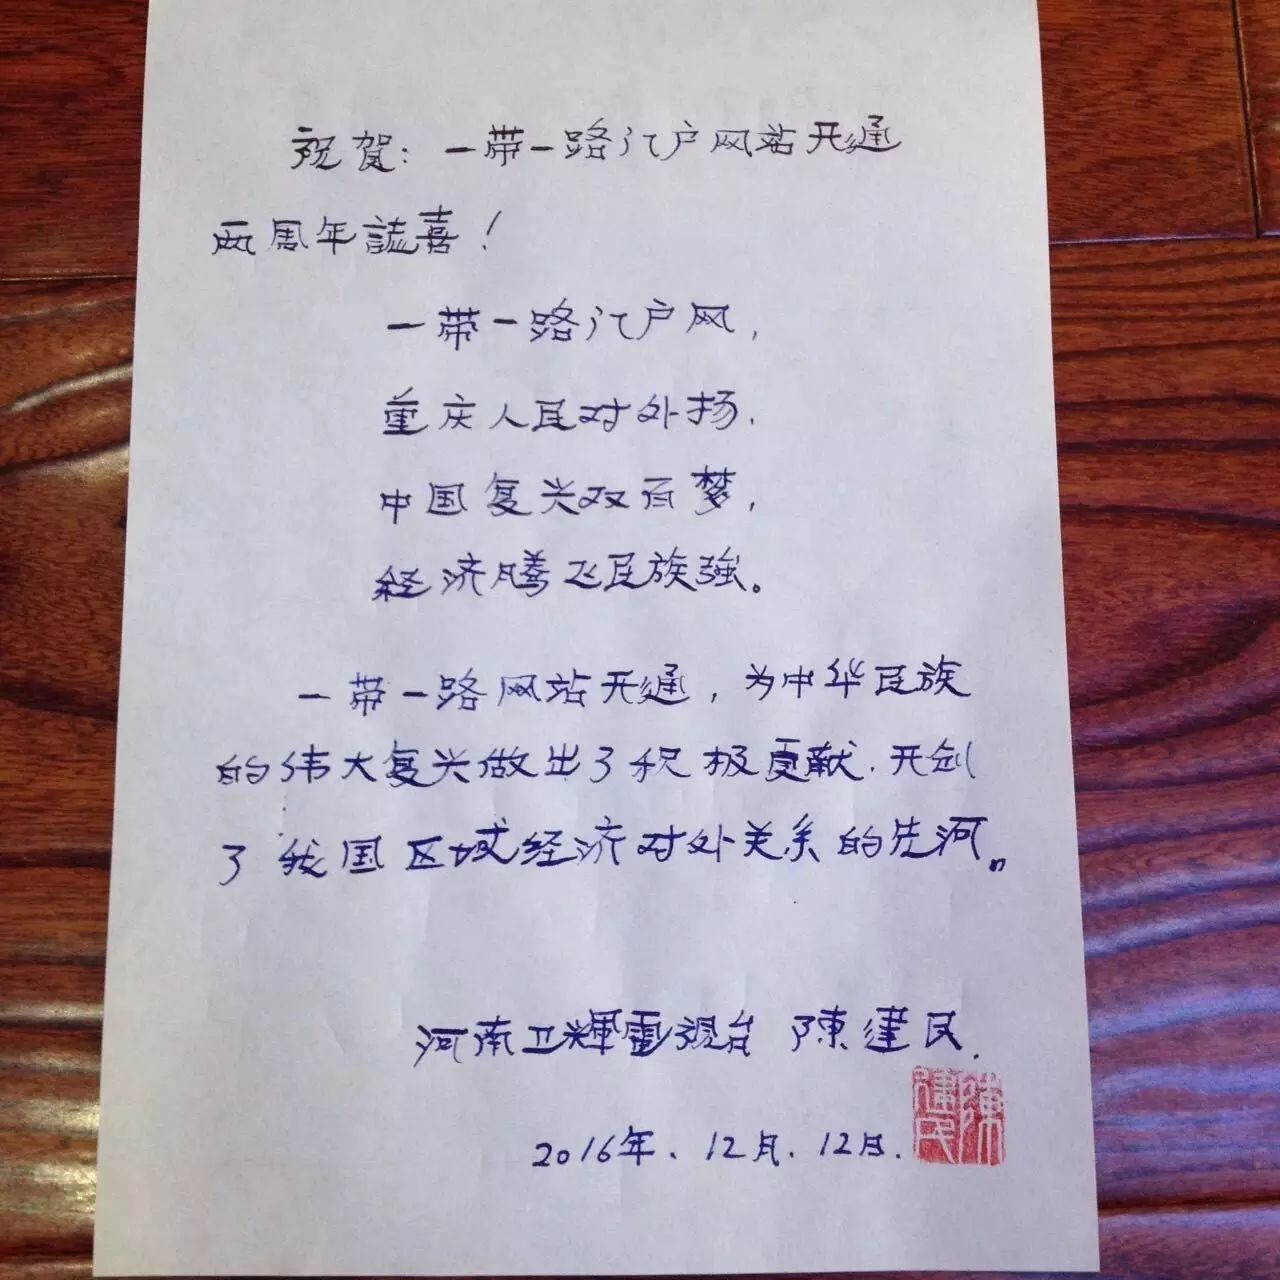 祝贺：一带一路门户网站开通
两周年誌喜！
一带一路门户网，
重庆人民对外扬．
中国复兴双百梦，
经济腾飞民族强。
一带一路网站开通，为中华民族
的伟大复兴做出了积极贡献．开创
了我国区域经济对外关系的先河。
河南卫輝電視台 陳建民．
2016年．12月．12日．
陳建民